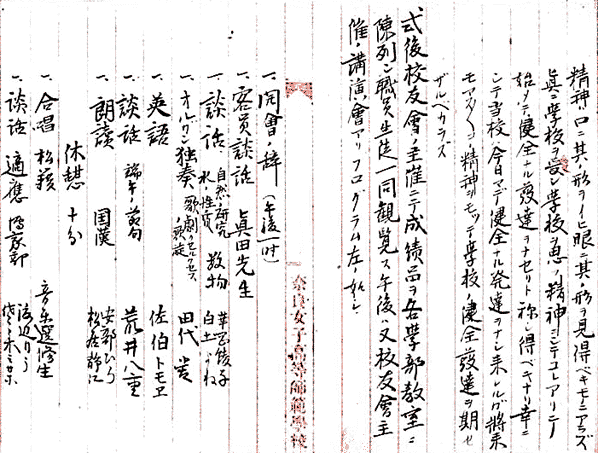 精神ハ口ニ其ノ形ヲイヒ眼ニ其ノ形ヲ見得ベキモノニアラズ
眞ニ學校ヲ愛シ學校ヲ思フ精神ニシテコレアリテ
始メテ健全ナル發達ヲナセリト称シ得ベキナリ幸ニ
シテ当校今日マデ健全ナル発達ヲナシ来レルガ將来
モマスマスコノ精神ヲモッテ學校ノ健全ナル發達ヲ期セ
ザルベカラズ
式後校友會ノ主催ニテ成績品ヲ各學部教室ニ
陳列シ職員生徒一同観覧ス午後ハ又校友會主
催ノ講演會アリプログラム左ノ如シ
奈良女子高等師範學校
一、開會ノ辞(午後一時)
一、客員談話 眞田先生
一、談話 自然ノ研究 水ノ性質 数物
一、オルガン独奏 歌劇 田代
一、英語 佐伯トモヱ
一、談話 端午ノ節句 荒井八重
一、朗讀 国漢 安部ひろ 松居静江
休憩 十分
一、合唱 音楽選修生
一、談話 適應 博家部